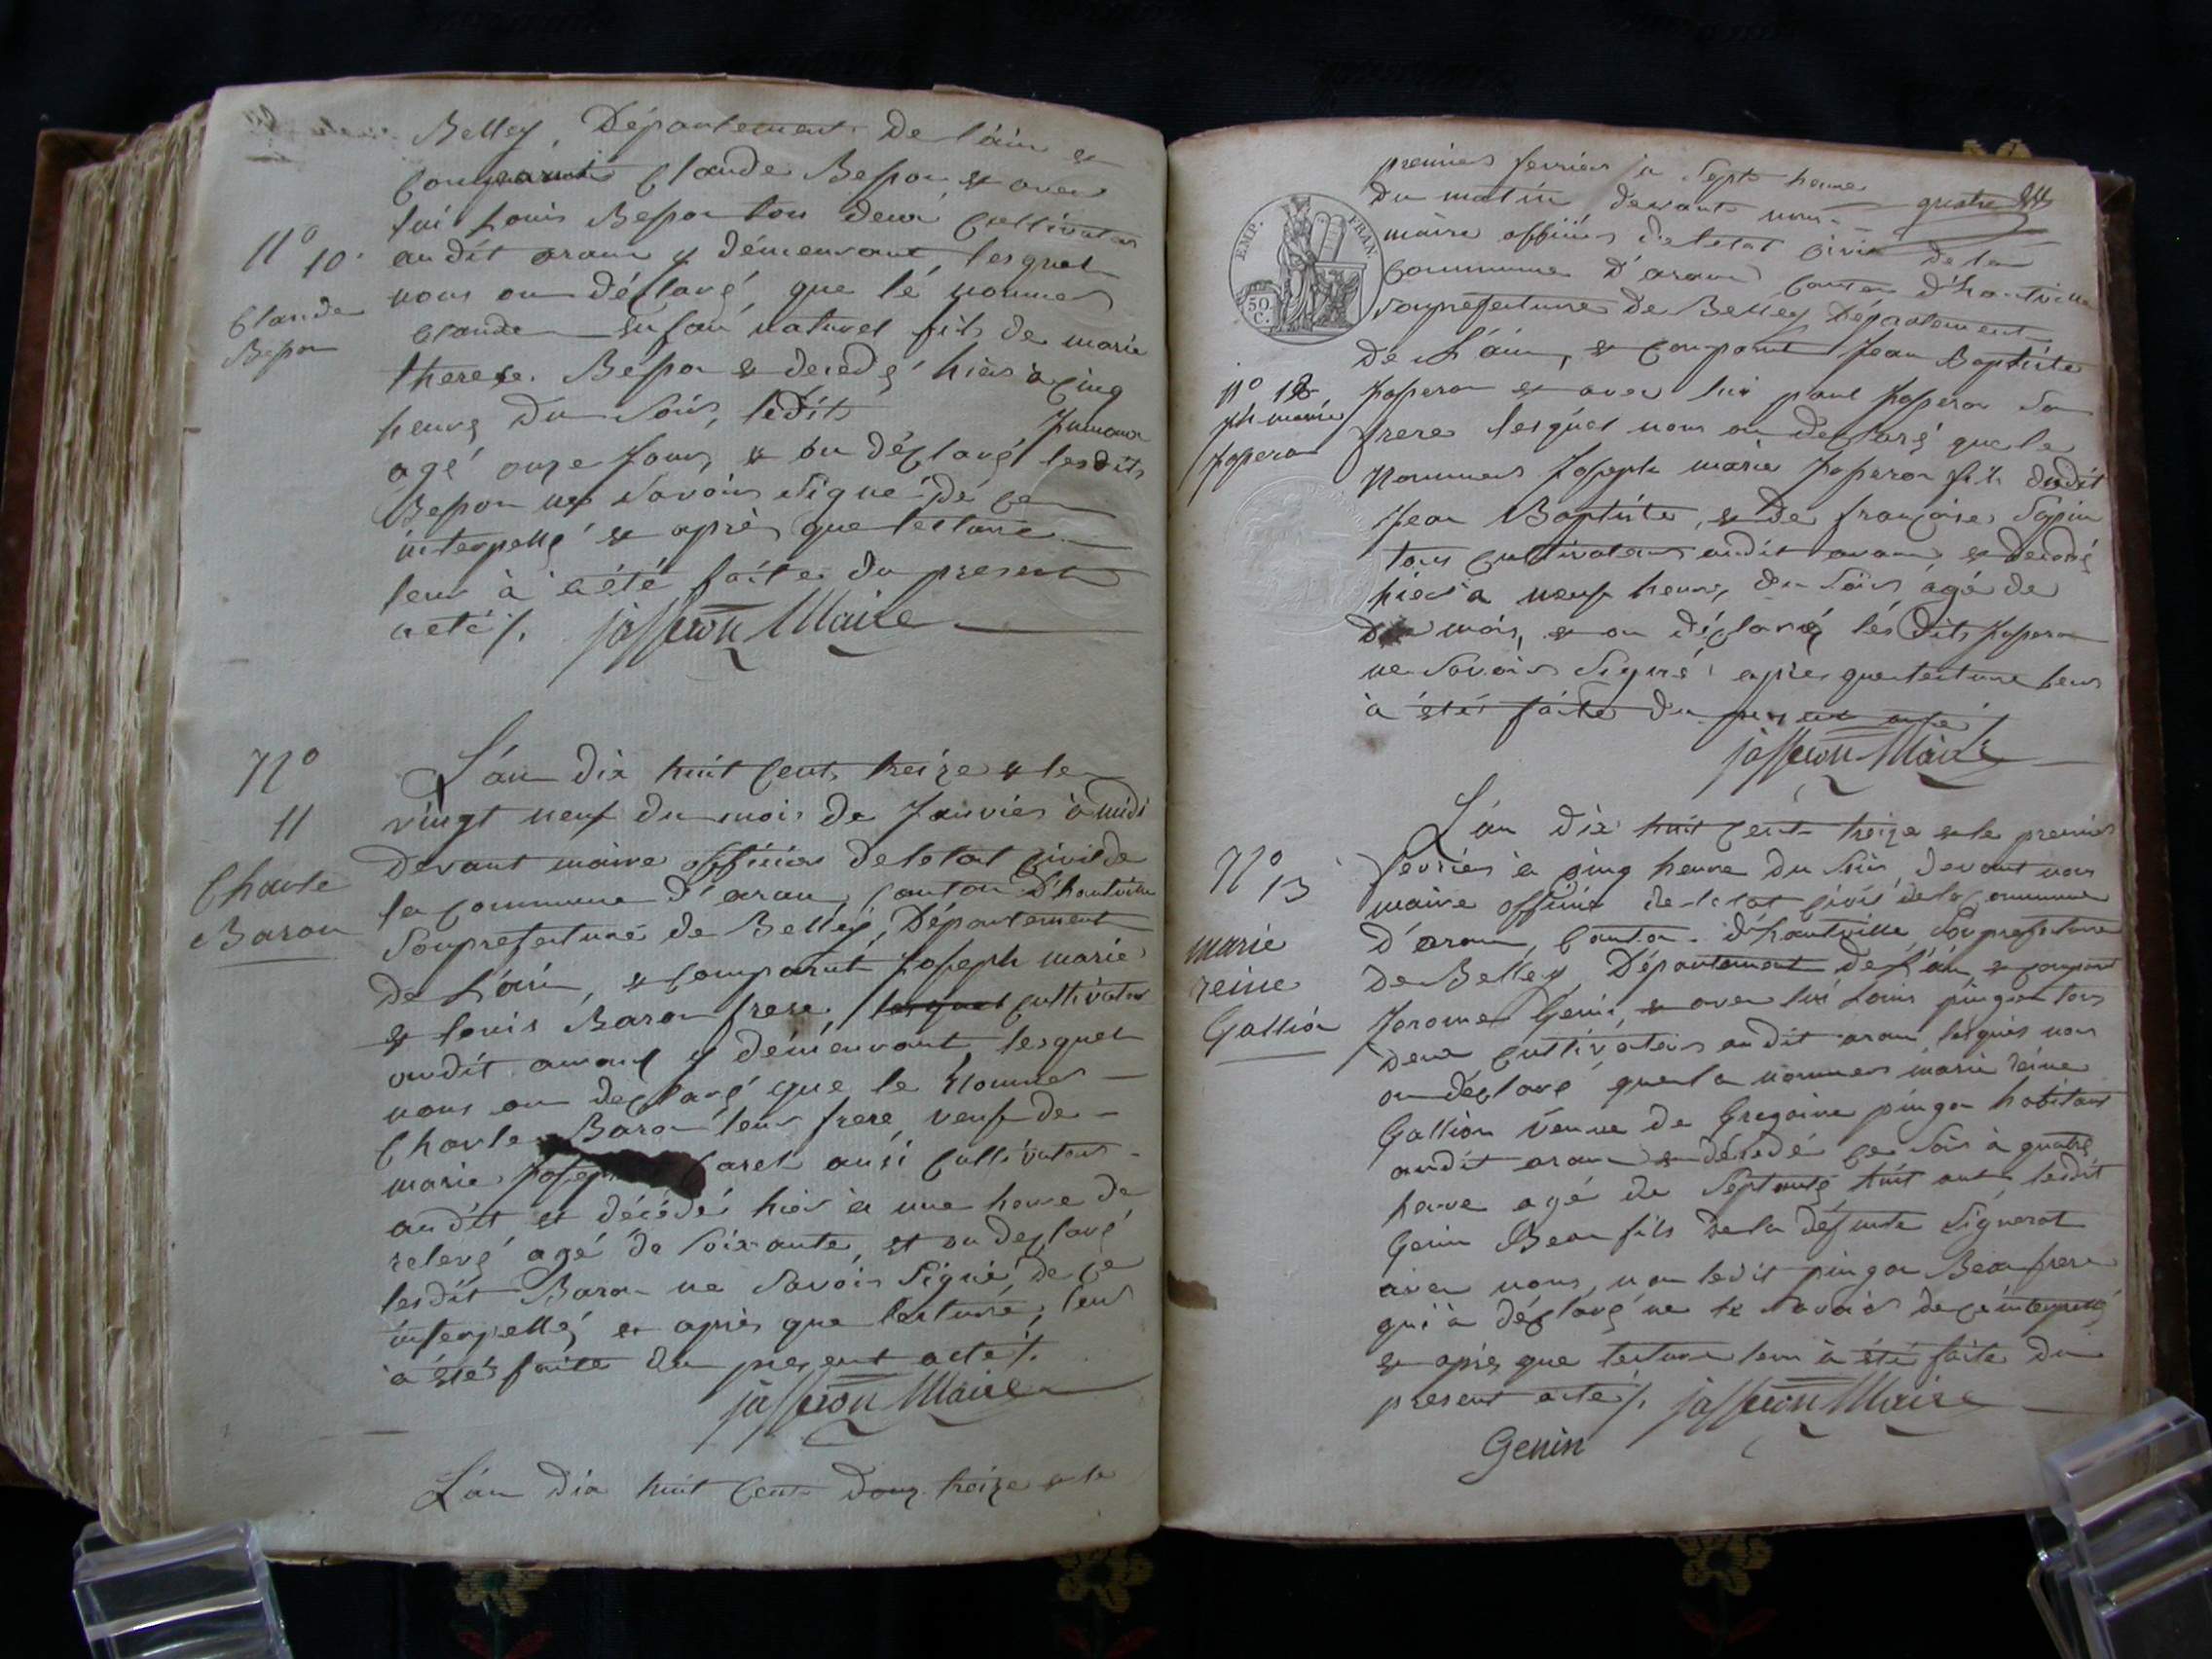 Belley, Département De l'áin et
Comparûit Claude Besson et avec
lui Louis Besson tou deux Cultivateur
N° 10
audit aranc y démeurant, lesquel
Claude
Besson
nous on déclaré, que lé nommé
Claude enfan naturel fils de marie
therese Besson et decedé hier à cinq
heures du Soir, ledit
agé onze Jours, et on déclaré lesdits
Besson ne Savoir Signé de ce
interpellé et après que lecture
leur à été faite du present
acte /. jasseron Maire
N°
11
Charle
Baron
L'an dix huit Cent treize & le
vingt neuf du mois de Janvier à midi
devant maire officier deletat Civil de
la Commune d'aranc, Canton d'hautville
Souprefecture de Belley, Département
de L'áin, et Comparut Joseph marie
et louis Baron frere, lesquel Cultivateur
audit aranc y démeurant, lesquel
nous on declaré que le Nommé
Charle Baron leur frere, veuf de
marie Joseph Caret ausi Cultivateur
audit et décédé hier à une heure de
relevé agé de Soixante, et on déclaré
lesdit Baron ne Savoir Signé, de ce
interpellé, et après que lecture, leur
à étés faite du present acte /.
jasseron Maire
L'an dix huit Cent Douz treize & le
premier fevrier à Sept heure
du matin devant nous
EMP. FRAN.
50 C.
maire officier de letat Civil de la
Commune D'aranc Canton D'hautville
Souprefecture De Belley Département
De L'áin, et Comparut Jean Baptiste
N° 12
Jh marie
Jasseron
Jasseron et avec lui paul Jasseron Son
frere lesquel nous on declaré que le
Nommé Joseph marie Jasseron fils dudit
Jean Baptiste, et De françoise Sapin
tous Cultivateur audit aranc et decedé
hier à neuf heure, du Soir agé de
mois, et on déclaré lésdits Jasseron
ne Savoir Signé après que lecture leur
à étés faite du present acte /
jasseron Maire
L'an dix huit Cent treize & le premier
N° 13
marie
reine
Gallion
fevrier à cinq heure du Soir, devant nous
maire officier de letat Civil de la Commune
D'aranc, Canton d'hautville Souprefecture
de Belley, Département de L'áin, et Comparut
Jerome Genin, et avec lui Louis pingon tous
deux Cultivateur audit aranc lesquels nous
on déclaré que la nommé marie reine
Gallion veuve de Gregoire pingon habitant
audit aranc est décédé ce Soir à quatre
heure agé de Septante huit ans, ledit
Genin Beau fils de la defunte Signerat
avec nous, non ledit pingon Beaufrere
qui à déclaré ne le Savoir de ce interpellé
et après que lecture leur à été faite du
present acte /. jasseron Maire
Genin